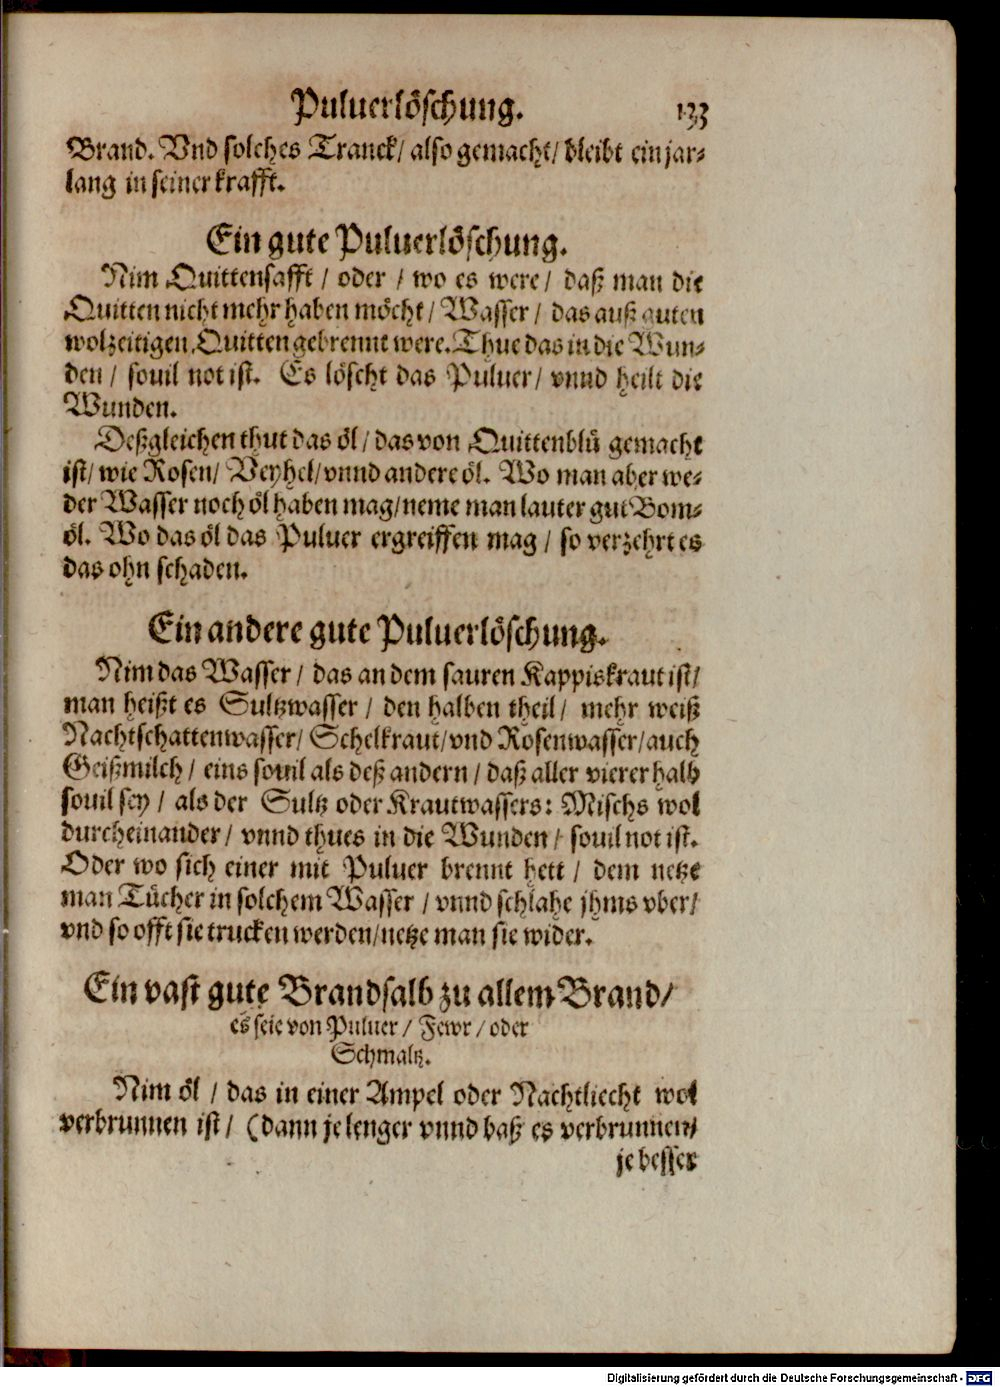 Puluerlöschung. 133
Brand. Vnd solches Tranck/ also gemacht/ bleibt ein jar-
lang in seiner krafft.
Ein gute Puluerlöschung.
Nim Quittensafft / oder / wo es were / daß man die
Quitten nicht mehr haben möcht / Wasser / das auß guten
wolzeitigen Quitten gebrennt were. Thue das in die Wun-
den / souil not ist. Es löscht das Puluer / vnnd heilt die
Wunden.
Deßgleichen thut das öl / das von Quittenblü gemacht
ist/ wie Rosen/ Veyhel/ vnnd andere öl. Wo man aber we-
der Wasser noch öl haben mag/ neme man lauter gut Bom-
öl. Wo das öl das Puluer ergreiffen mag / so verzehrt es
das ohn schaden.
Ein andere gute Puluerlöschung.
Nim das Wasser / das an dem sauren Kappiskraut ist/
man heißt es Sultzwasser / den halben theil / mehr weiß
Nachtschattenwasser/ Schelkraut/ vnd Rosenwasser/ auch
Geißmilch / eins souil als deß andern / daß aller vierer halb
souil sey / als der Sultz oder Krautwassers: Mischs wol
durcheinander / vnnd thues in die Wunden / souil not ist.
Oder wo sich einer mit Puluer brennt hett / dem netze
man Tücher in solchem Wasser / vnnd schlahe jhms vber/
vnd so offt sie trucken werden/ netze man sie wider.
Ein vast gute Brandsalb zu allem Brand/
es seie von Puluer / Fewr / oder
Schmaltz.
Nim öl / das in einer Ampel oder Nachtliecht wol
verbrunnen ist / (dann je lenger vnnd baß es verbrunnen/
je besser
Digitalisierung gefördert durch die Deutsche Forschungsgemeinschaft - DFG